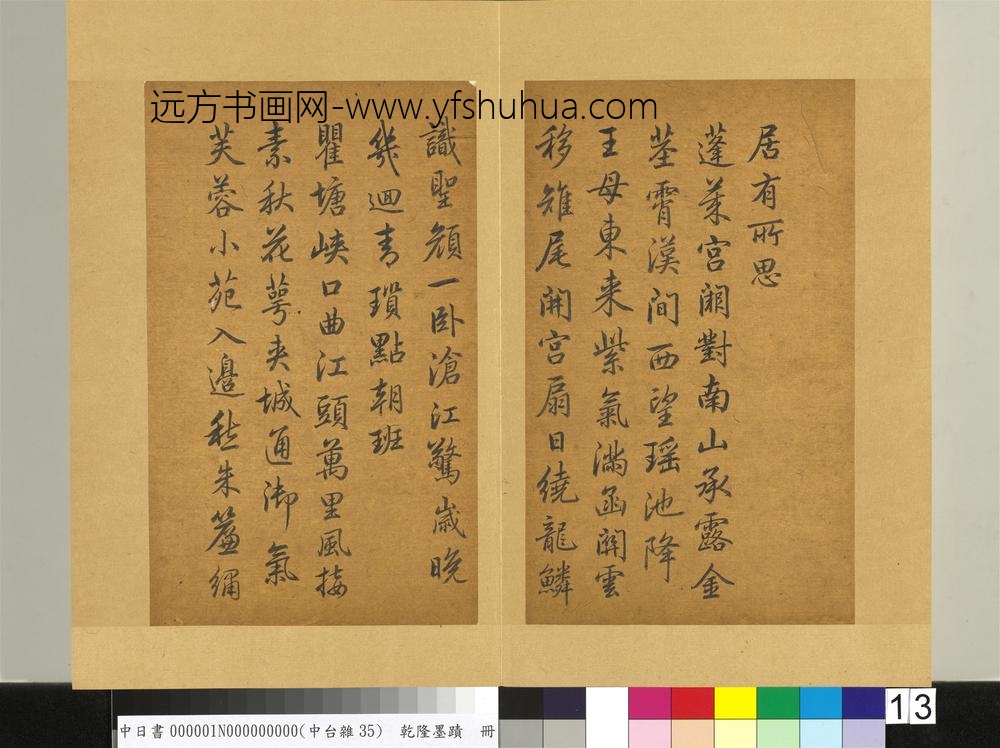 远方书画网-www.yfshuhua.com
居有所思
蓬萊宫闕對南山承露金
莖霄漢間西望瑶池降
王母東来紫氣滿函關雲
移雉尾開宫扇日繞龍鱗
識聖顔一卧滄江驚歲晚
幾迴青瑣點朝班
瞿塘峽口曲江頭萬里風接
素秋花萼夹城通御氣
芙蓉小苑入邊愁朱簾繡
13
中日書000001N000000000(中台雜35) 乾隆墨蹟 冊